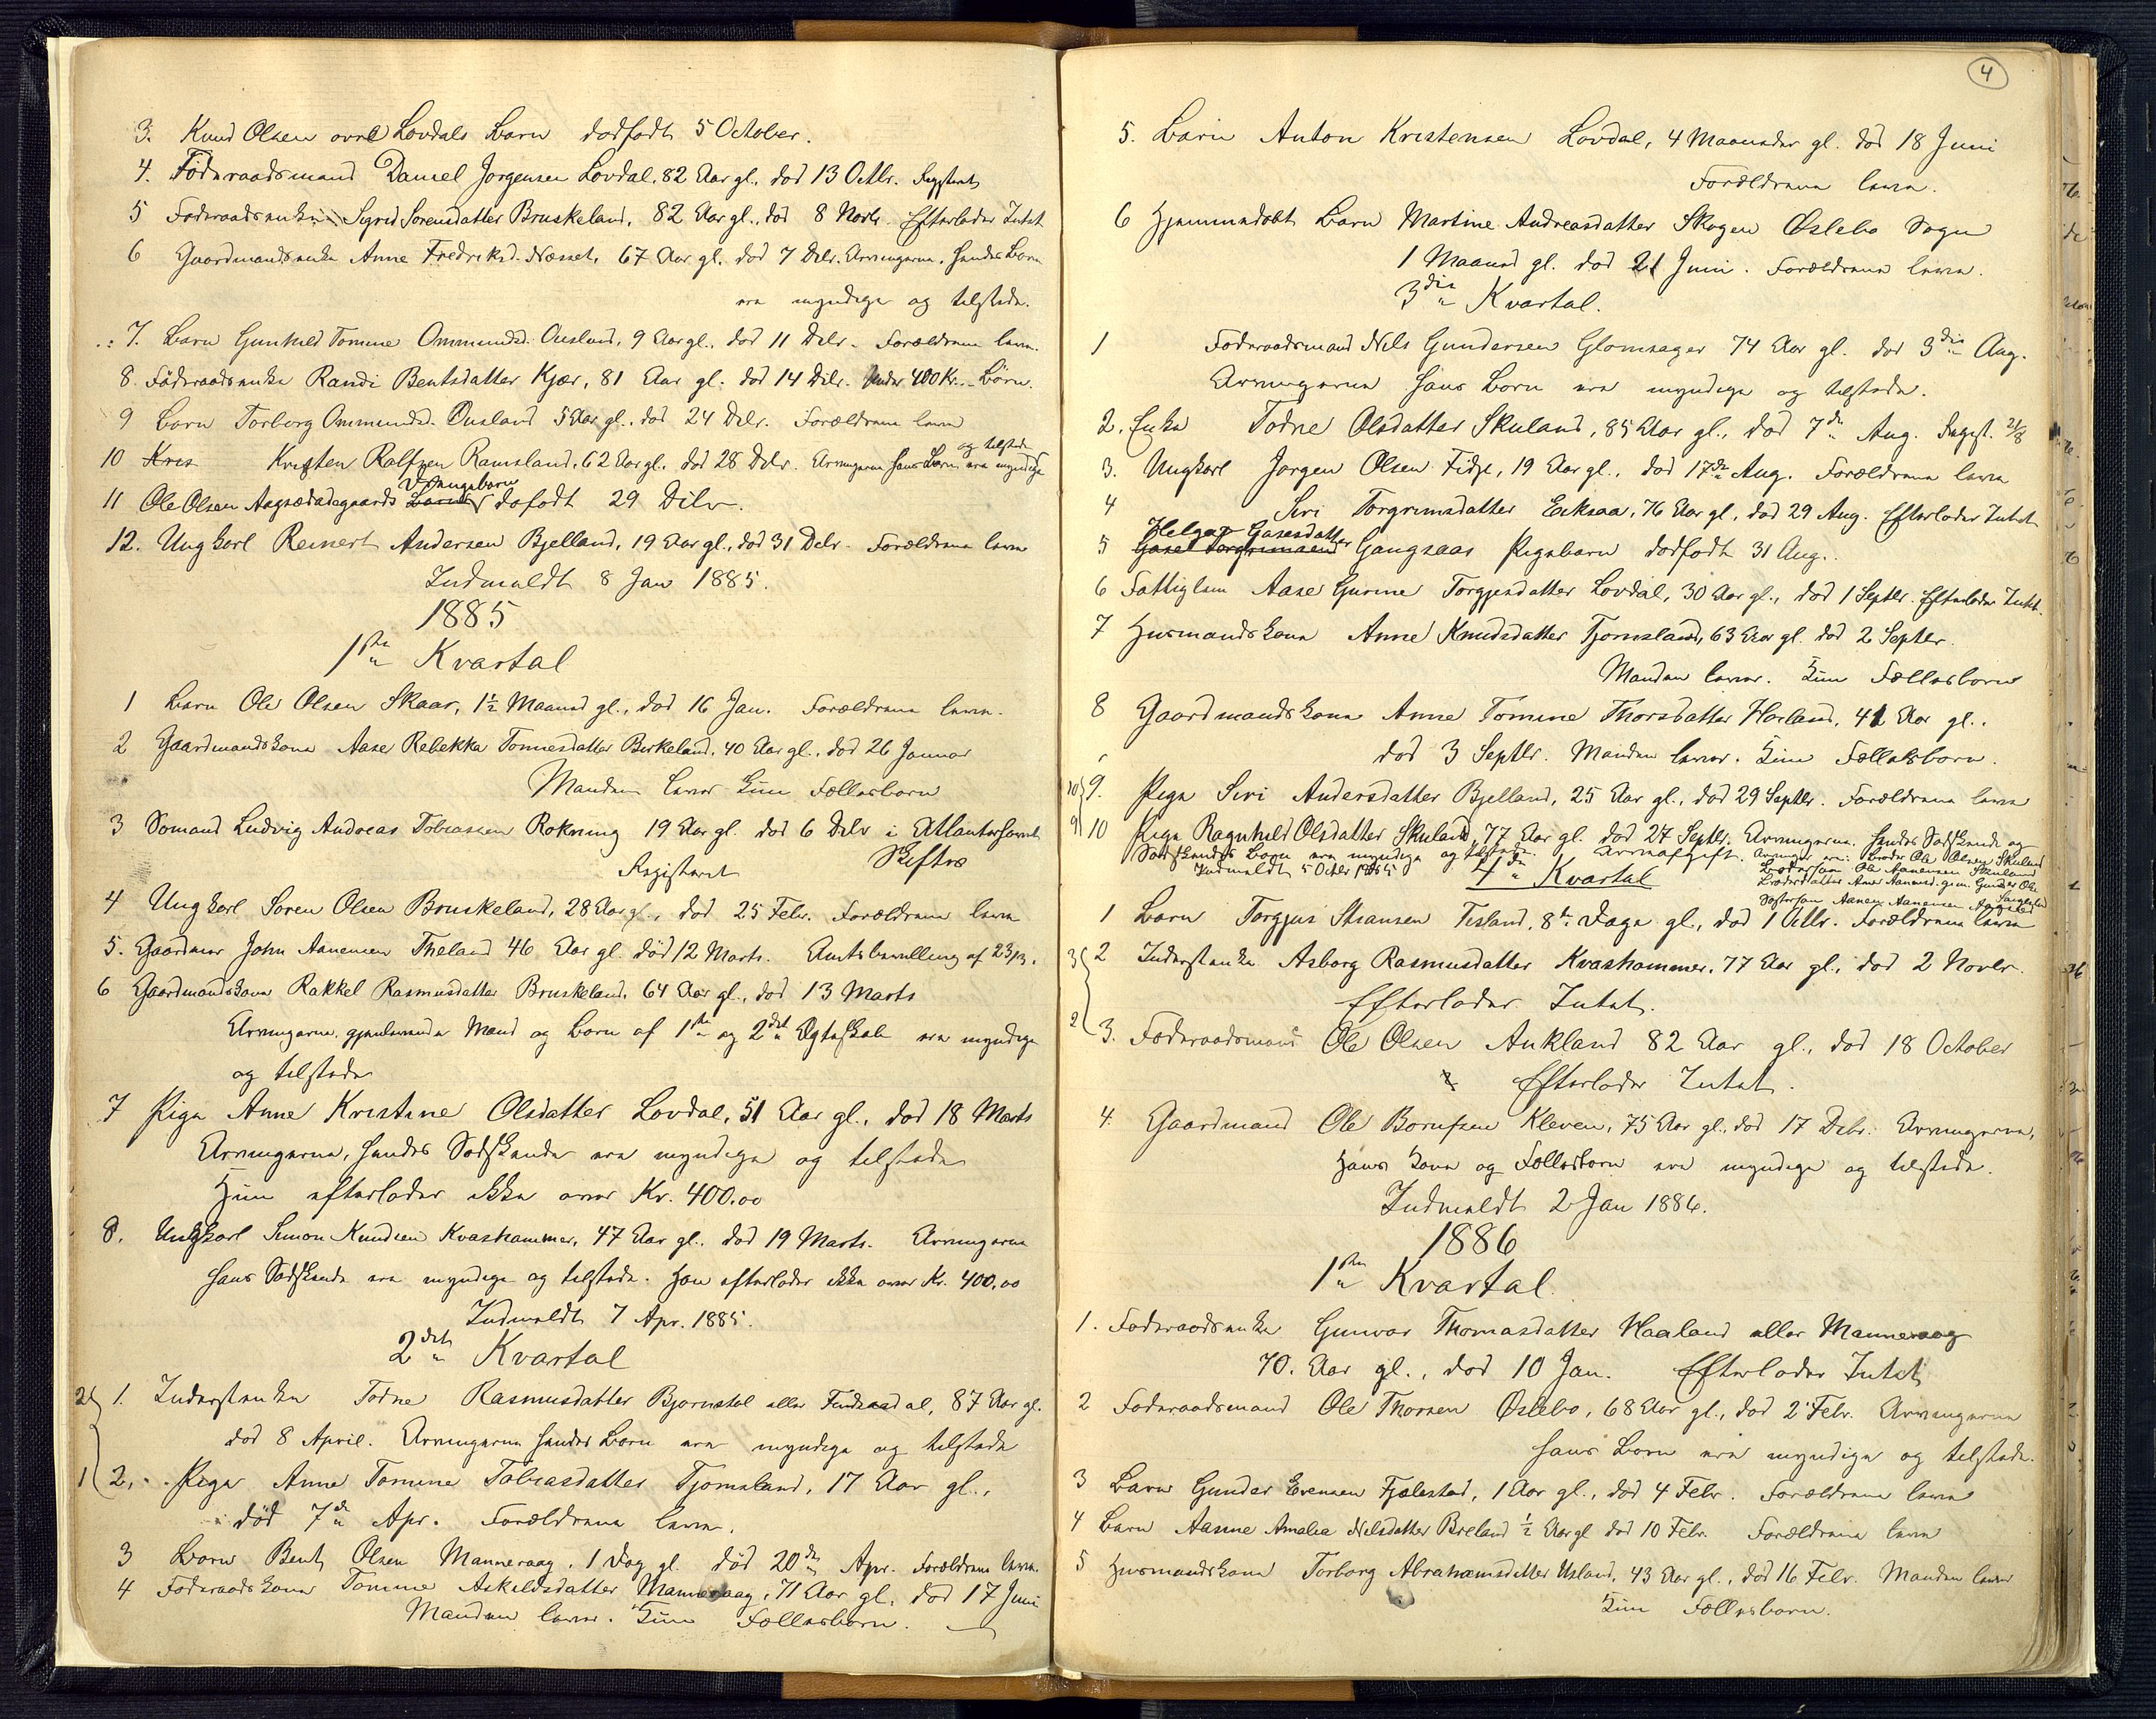 3. Knud Olsen øvre Lovdals Barn dødfødt 5 October.
4. Føderaadsmand Daniel Jørgensen Lovdal, 82 Aar gl., død 13 Octbr. Registreret
5 Føderaadsenke Sigrid Sørensdatter Bruskeland, 82 Aar gl., død 8 Novbr. Efterlader Intet
6 Gaardmandsenke Anne Fredriksd. Næsset, 67 Aar gl. død 7 Debr. Arvingerne, hendes Børn
ere myndige og tilstede.
7. Barn Gunhild Tomine Ommunds. Ousland, 9 Aar gl., død 11 Debr. Forældrene leve.
8. Føderaadsenke Randi Bentsdatter Kjær, 81 Aar gl. død 14 Debr. Under 400 Kr. - Børn.
9 Barn Torborg Ommunds. Ousland 5 Aar gl., død 24 Debr. Forældrene leve
og tilstede
10 Kris Kristen Rolfsen Ramsland, 62 Aar gl. død 28 Debr. Arvingerne hans Børn ere myndige
Drengebarn
11 Ole Olsen Aagsædadegaards Barn døfødt 29 Debr.
12. Ungkarl Reinert Andersen Bjelland, 19 Aar gl., død 31 Debr. Forældrene leve
Indmeldt 8 Jan 1885.
1885
1ste Kvartal
1 Barn Ole Olsen Skaar, 1½ Maaned gl., død 16 Jan. Forældrene leve.
2 Gaardmandskone Aase Rebekka Tønnesdatter Birkeland, 40 Aar gl., død 26 Januar
Manden lever Kun Fællesbørn
3 Sømand Ludvig Andreas Tobiassen Røkning 19 Aar gl. død 6 Debr i Atlanterhavet
Registeret Skiftes
4 Ungkarl Søren Olsen Bruskeland, 28 Aar gl., død 25 Febr. Forældrene leve
5. Gaardmand John Aanensen Theland 46 Aar gl. død 12 Marts. Amtsbevilling af 23/3.
6 Gaardmandskone Rakkel Rasmusdatter Bruskeland, 64 Aar gl., død 13 Marts
Arvingerne, gjenlevende Mand og Børn af 1ste og 2det Ægteskab ere myndige
og tilstede
7 Pige Anne Kristine Olsdatter Lovdal, 51 Aar gl., død 18 Marts
Arvingerne, hendes Sødskende ere myndige og tilstede
Hun efterlader ikke over Kr. 400.00
8. Ungkarl Simon Knudsen Kvashammer, 47 Aar gl. død 19 Marts. Arvingerne
hans Sødskende ere myndige og tilstede. Han efterlader ikke over Kr. 400,00
Indmeldt 7 Apr. 1885.
2det Kvartal
2 1. Inderstenke Todne Rasmusdatter Bjørnstøl eller Findsaadal, 87 Aar gl.
død 8 April. Arvingerne hendes Børn ere myndige og tilstede
1 2. Pige Anne Tomine Tobiasdatter Tjomsland, 17 Aar gl.,
død 7de Apr. Forældrene leve.
3 Barn Bent Olsen Manneraag, 1 Dag gl. død 20de Apr. Forældrene leve.
4 Føderaadskone Tomine Askildsdatter Manneraag, 71 Aar gl. død 17 Juni
Manden lever. Kun Fællesbørn.
4
5. Barn Anton Kristensen Lovdal, 4 Maaneder gl. død 18 Juni
Forældrene leve.
6 Hjemmedøbt Barn Martine Andreasdatter Skogen Øslebø Sogn
1 Maaned gl. død 21 Juni. Forældrene leve.
3die Kvartal.
1 Føderaadsmand Nils Gundersen Glomsager 74 Aar gl. død 3die Aug.
Arvingerne hans Børn ere myndige og tilstede.
2. Enke Todne Olsdatter Skuland, 85 Aar gl., død 7de Aug. Regist. 21/8
3. Ungkarl Jørgen Olsen Fidje, 19 Aar gl., død 17de Aug. Forældrene leve
4 Siri Torgrimsdatter Eeksaa, 76 Aar gl., død 29 Aug. Efterlader Intet
Helga Gasesdatter
5 Gasel Torgrimsens Gangsaas Pigebarn dødfødt 31 Aug.
6 Fattiglem Aase Gurine Torgjusdatter Lovdal, 30 Aar gl., død 1 Septbr. Efterlader Intet.
7 Husmandskone Anne Knudsdatter Tjomsland, 63 Aar gl. død 2 Septbr.
Manden lever. Kun Fællesbørn
8 Gaardmandskone Anne Tomine Thorsdatter Horland, 41 Aar gl.,
død 3 Septbr. Manden lever. Kun Fællesbørn.
10 9. Pige Siri Andersdatter Bjelland, 25 Aar gl., død 29 Septbr. Forældrene leve
9 10 Pige Ragnhild Olsdatter Skuland, 77 Aar gl. død 27 Septbr. Arvingerne, hendes Sødskende og
Sødskendes Børn ere myndige og tilstede. Arveafgift. Arvinger ere: Broder Ole Olsen Skuland
Indmeldt 5 Octbr 1885 Brodersøn Ole Aanensen Skuland
4de Kvartal Broderdatter Anne Aanensd. gm. Gunder Ols.
Søstersøn Aanen Aanensen
1 Barn Torgjus Stiansen Tisland, 8te Dage gl., død 1 Octbr. Forældrene leve
3 2 Inderstenke Asborg Rasmusdatter Kvashammer, 77 Aar gl., død 2 Novbr.
Efterlader Intet.
2 3. Føderaadsmand Ole Olsen Aukland 82 Aar gl., død 18 October
Efterlader Intet.
4. Gaardmand Ole Borufsen Kleven, 75 Aar gl., død 17 Debr. Arvingerne,
hans Kone og Fællesbørn ere myndige og tilstede.
Indmeldt 2 Jan 1886.
1886
1ste Kvartal.
1. Føderaadsenke Gunvor Thomasdatter Haaland eller Manneraag
70. Aar gl., død 10 Jan. Efterlader Intet
2 Føderaadsmand Ole Thorsen Øslebø, 68 Aar gl., død 2 Febr. Arvingerne
hans Børn ere myndige og tilstede.
3 Barn Gunder Evensen Fjælestad, 1 Aar gl., død 4 Febr. Forældrene leve
4 Barn Aasne Amalia Nilsdatter Breland ½ Aar gl død 10 Febr. Forældrene leve
5 Husmandskone Torborg Abrahamsdatter Usland, 43 Aar gl., død 16 Febr. Manden lever
Kun Fællesbørn.